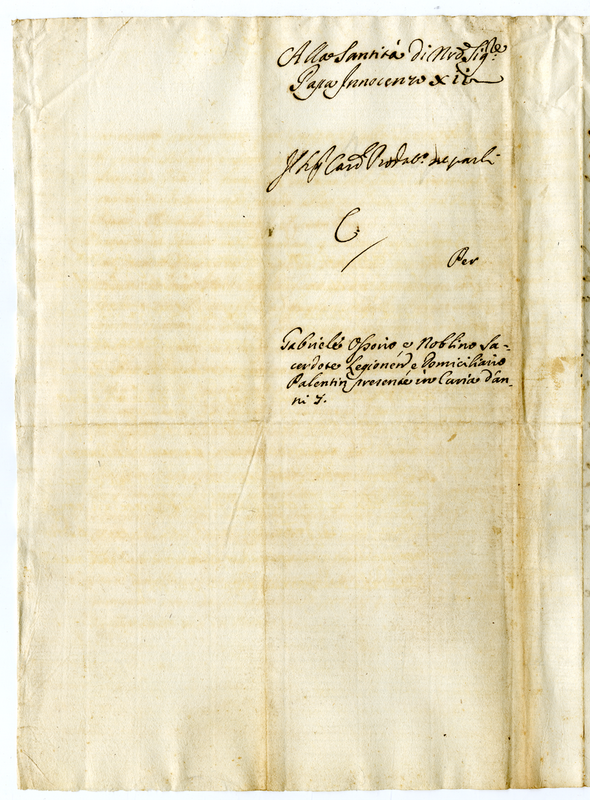 Alla Santità di Nrõ Sigre
Papa Innocenzo XII
Il Sig Card Prodat.º ne parli
C
Per
Gabriele Osorio e Noblino Sa-
cerdote Legionen e Domiciliario
Palentin presente in Curia d'an-
ni 7.